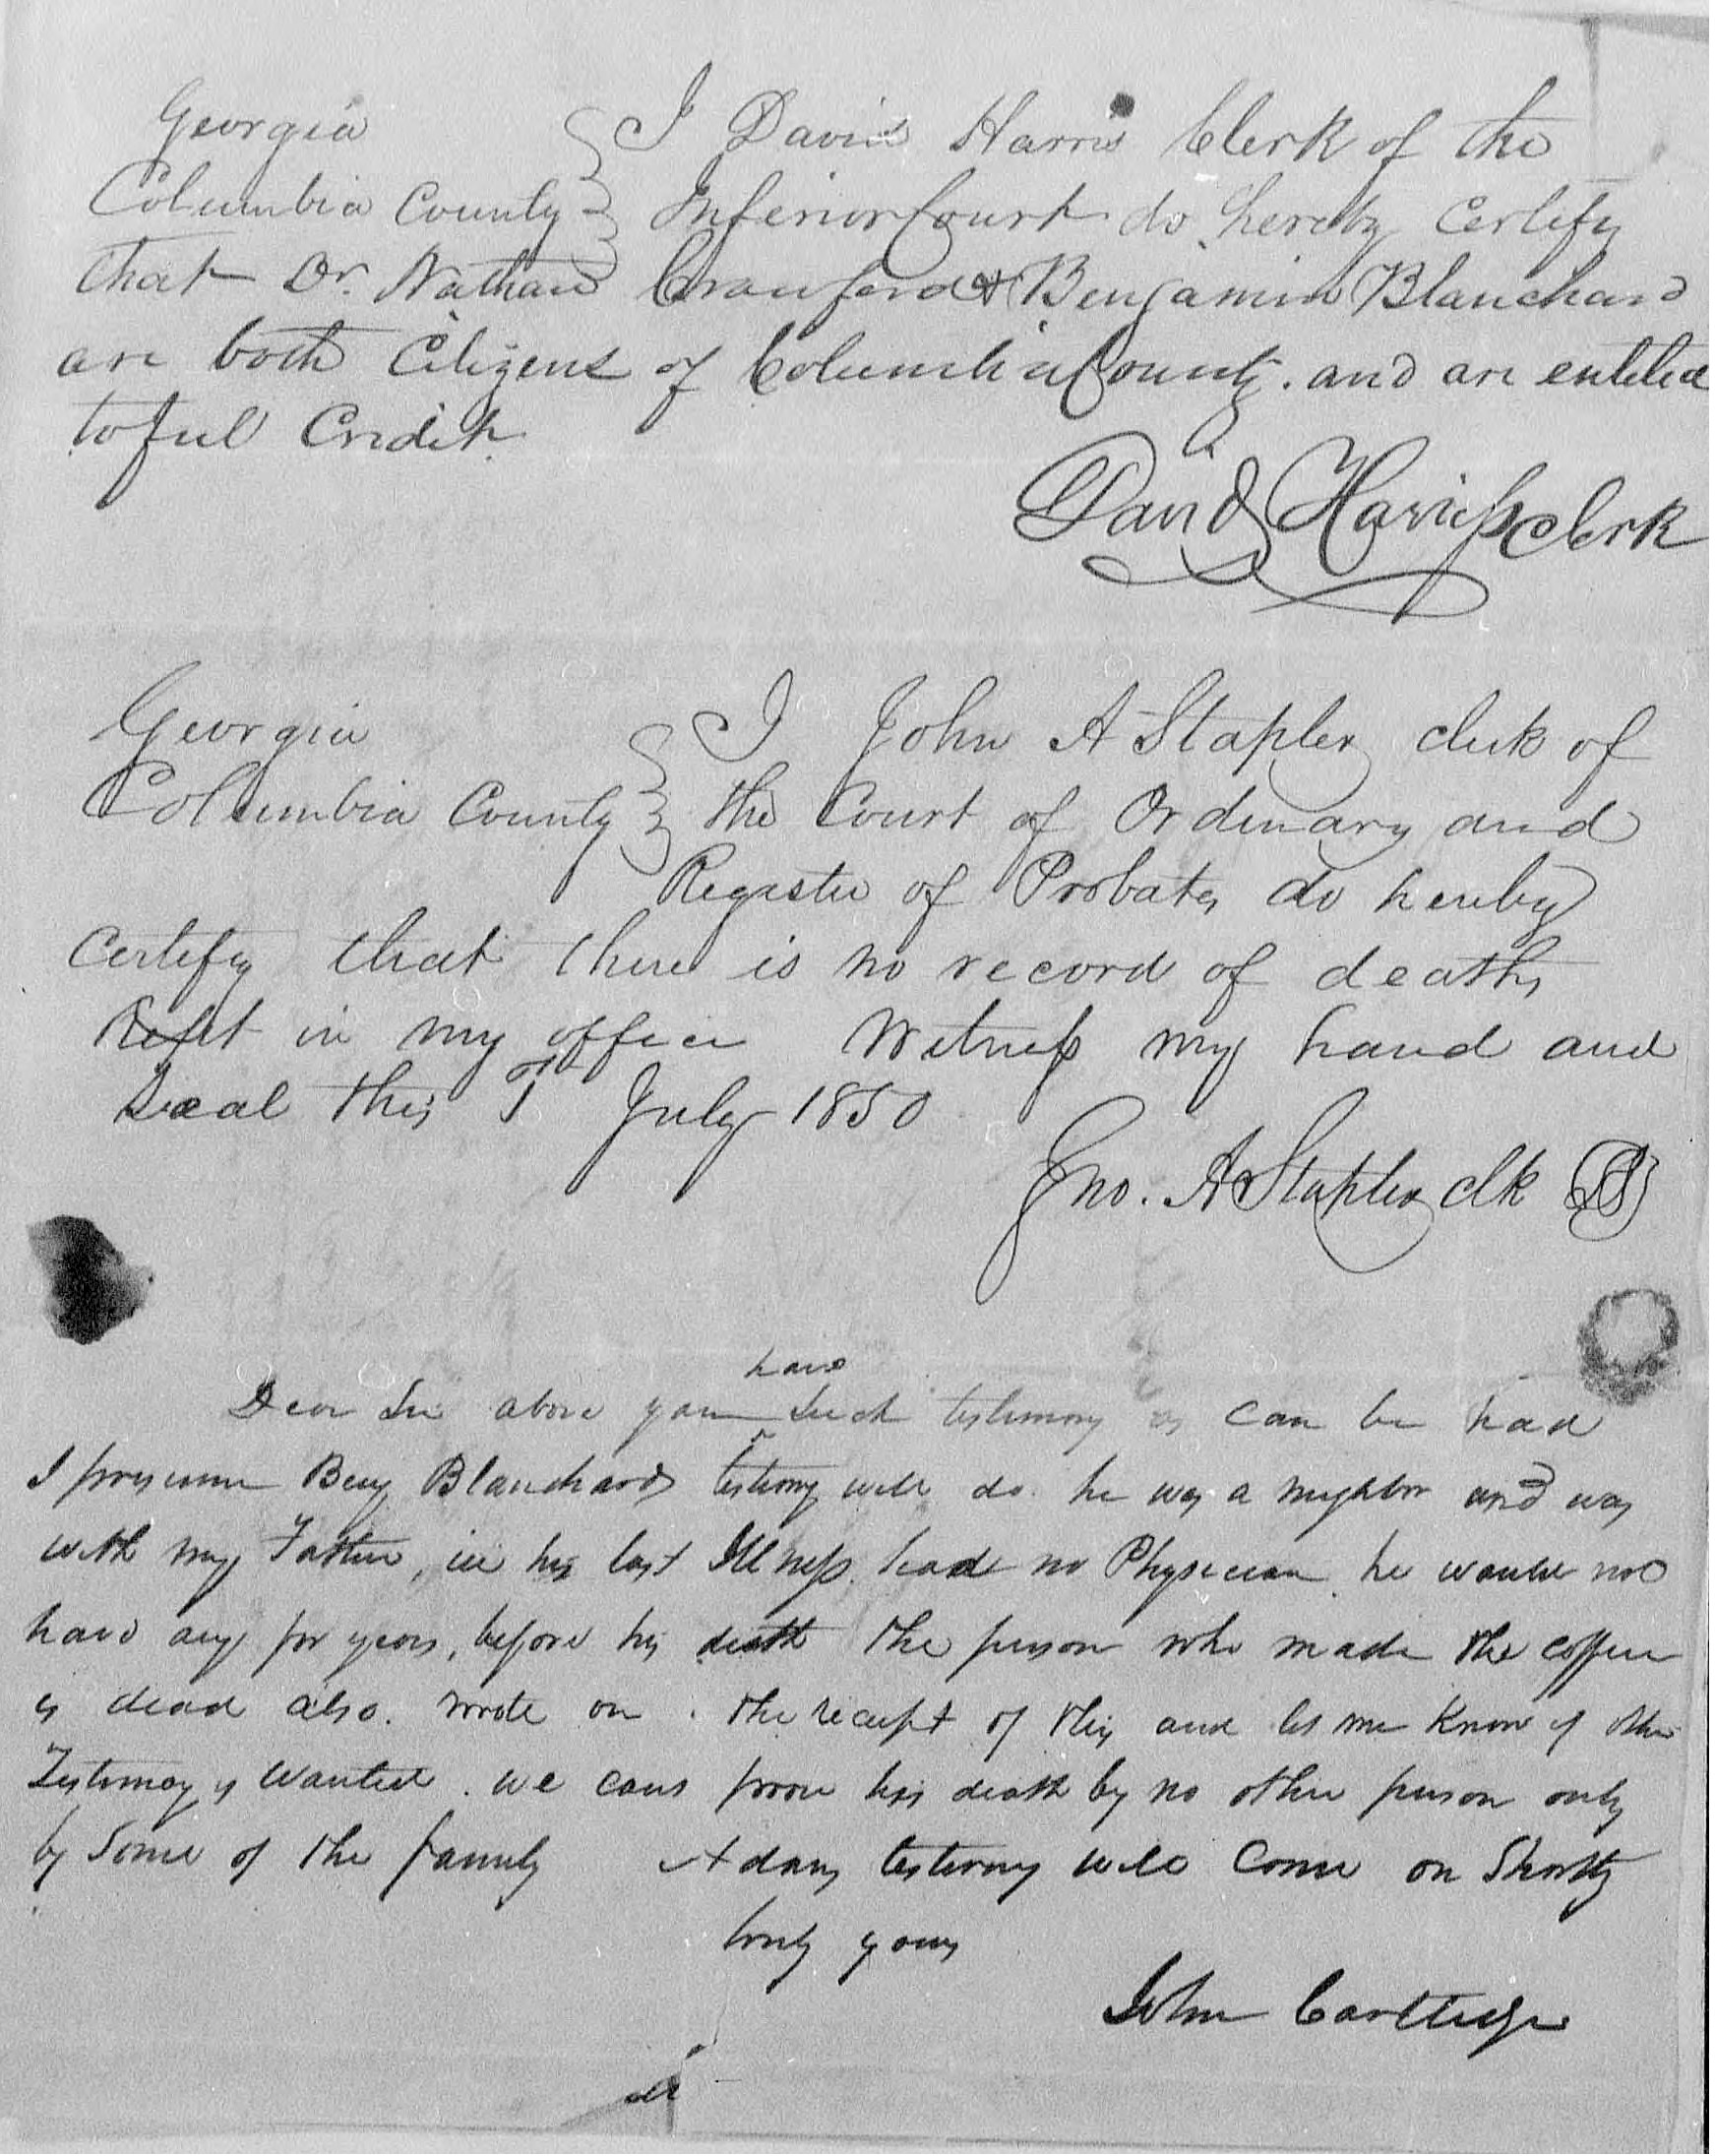 Georgia } I David Harris Clerk of the
Columbia County } Inferior Court do hereby Certify
that Dr. Nathan Crawford & Benjamin Blanchard
are both Citizens of Columbia County. and are entitled
to full Credit.
David Harriss Clerk
Georgia } I John A Stapler clerk of
Columbia County } the Court of Ordinary and
Register of Probates do hereby
Certify that there is no record of deaths
Kept in my office Witness my hand and
Seal this July 1850
Jno. A Stapler clk LS
have
Dear Sir above you such testimony as can be had
I presume Benj Blanchards testimony will do. he was a neighbor and was
with my Father, in his last Illness. had no Physician he would not
have any for years, before his death the person who made the coffin
is dead also. write on the receipt of this and let me know if other
Testimony is wanted. we can prove his death by no other person only
by some of the family Adams testimony will come on Shortly
truly yours
John Cartledge